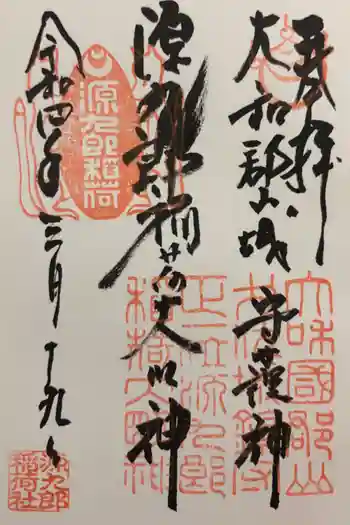 奉拝
大和郡山城
守護神
源九郎稲荷大明神
令和四年三月十九日
源九郎稲荷
大和國郡山
正一位源九郎
稲荷大明神
源九郎
稲荷社